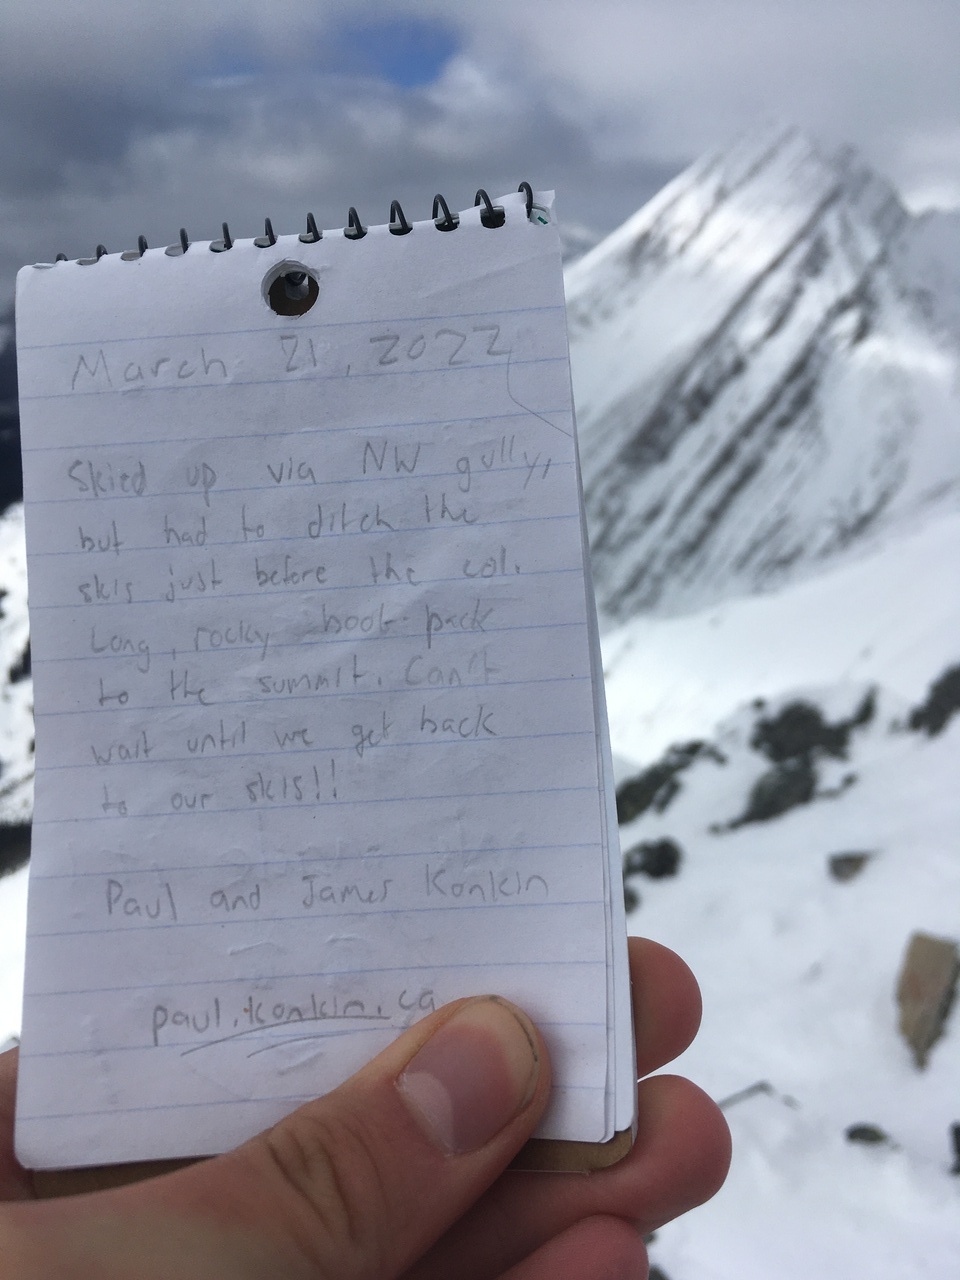 March 21, 2022
Skied up via NW gully,
but had to ditch the
skis just before the col.
Long, rocky boot-pack
to the summit. Can't
wait until we get back
to our skis!!
Paul and James Konkin
paul.konkin.ca